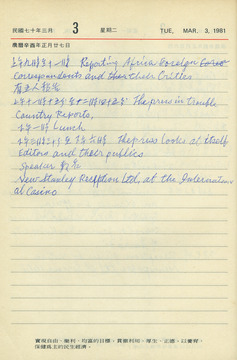 民國七十年三月 3 星期二 TUE, MAR. 3, 1981
農曆辛酉年正月廿七日
上午九時至十一時 Reporting Africa Foreign
Correspondents and their Critics
有主人報告
上午十一時十五分至十二時四十五分 The press in
Country Reports,
下午一時 Lunch
下午三時 The press looks at itself
Editors and their publics
Speaker
New Stanley Reception Ltd, at the International
Casino
實現自由、樂利、均富的目標,貫徹利用、厚生、正德、以養育、
保健爲主的民生經濟。